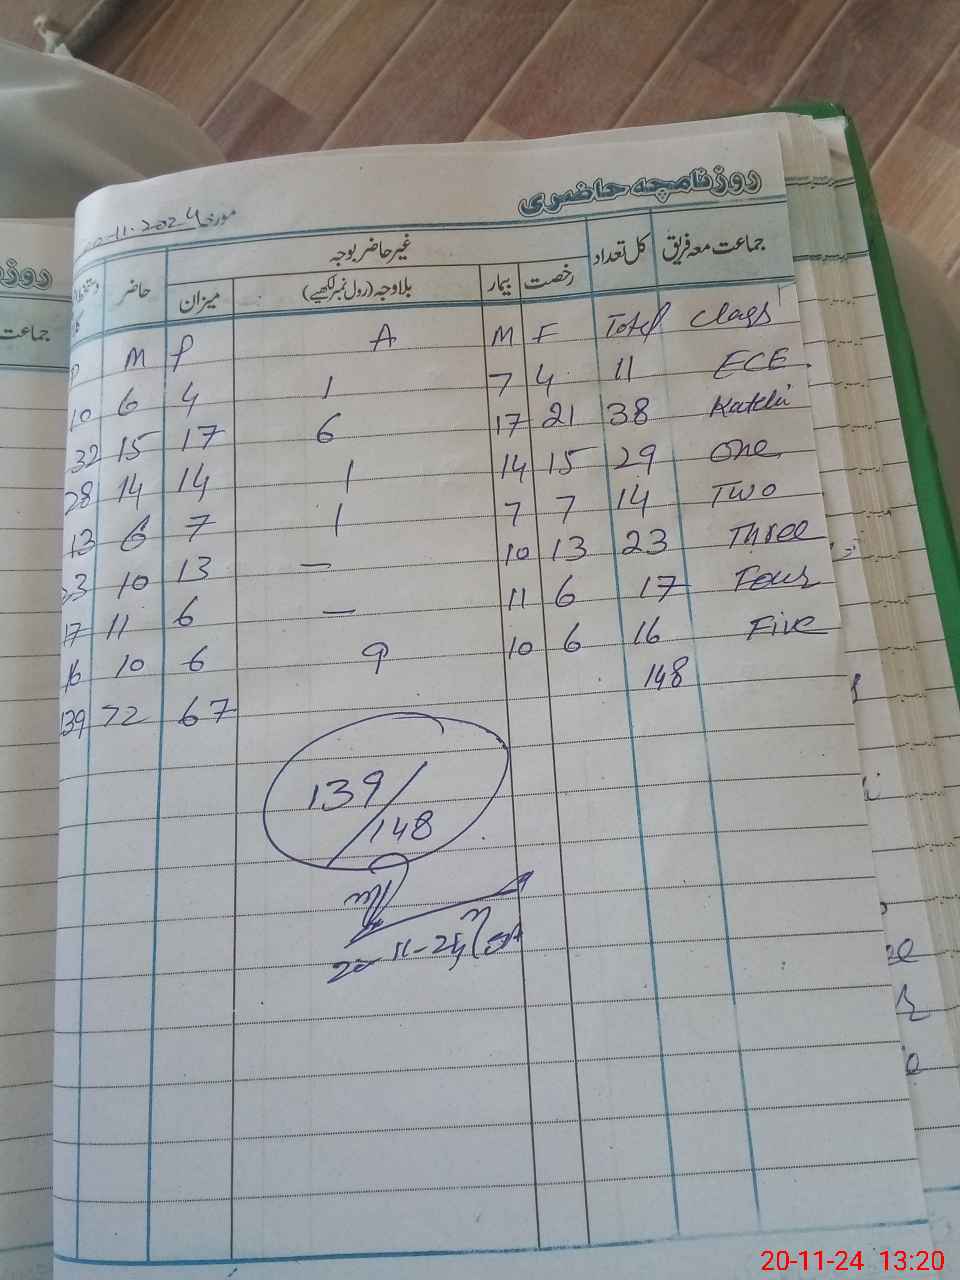 روزنامچہ حاضری
مورخہ 20-11-2024
جماعت معہ فریق کل تعداد غیر حاضر بوجہ حاضر
رخصت بیمار بلاوجہ (رول نمبر لکھیے) میزان
Class Total F M A F M P
ECE 11 4 7 1 4 6 10
Katchi 38 21 17 6 17 15 32
One 29 15 14 1 14 14 28
Two 14 7 7 1 7 6 13
Three 23 13 10 — 13 10 23
Four 17 6 11 — 6 11 17
Five 16 6 10 6 10 16
148
9 67 72 139
139/148
20-11-24
روزنا
جماعت
20-11-24 13:20